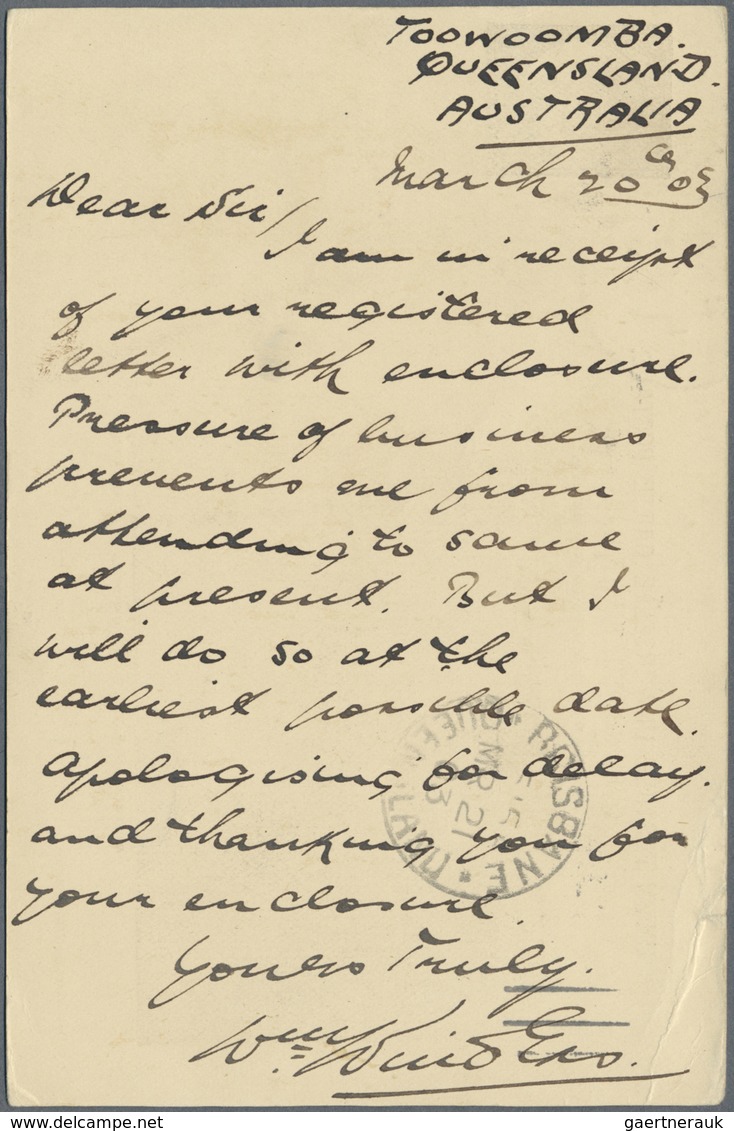 TOOWOOMBA.
QUEENSLAND.
AUSTRALIA
March 20th 03
Dear Sir/
I am in receipt
of your registered
letter with enclosure.
Pressure of business
prevents me from
attending to same
at present. But I
will do so at the
earliest possible date.
apologising for delay.
and thanking you for
your enclosure.
Yours Truly.
Wm
BRISBANE
5
MR 21
03
QUEENSLAND
gaertnerauk